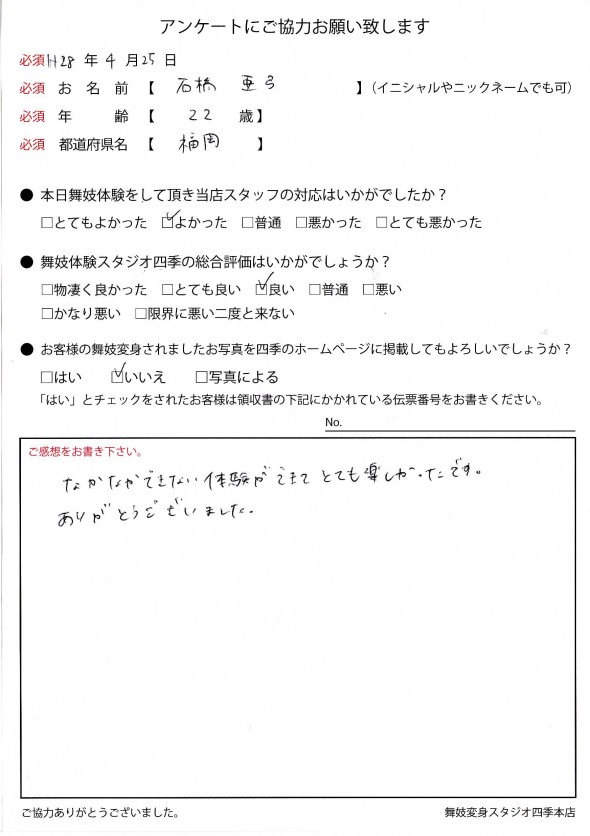 アンケートにご協力お願い致します
必須 H28 年 4 月 25 日
必須 お 名 前 【 石橋 亜弓 】（イニシャルやニックネームでも可）
必須 年 齢 【 22 歳】
必須 都道府県名 【 福岡 】
● 本日舞妓体験をして頂き当店スタッフの対応はいかがでしたか？
□とてもよかった ☑よかった □普通 □悪かった □とても悪かった
● 舞妓体験スタジオ四季の総合評価はいかがでしょうか？
□物凄く良かった □とても良い ☑良い □普通 □悪い
□かなり悪い □限界に悪い二度と来ない
● お客様の舞妓変身されましたお写真を四季のホームページに掲載してもよろしいでしょうか？
□はい ☑いいえ □写真による
「はい」とチェックをされたお客様は領収書の下記にかかれている伝票番号をお書きください。
No.
ご感想をお書き下さい。
なかなかできない体験ができて とても楽しかったです。
ありがとうございました。
ご協力ありがとうございました。 舞妓変身スタジオ四季本店